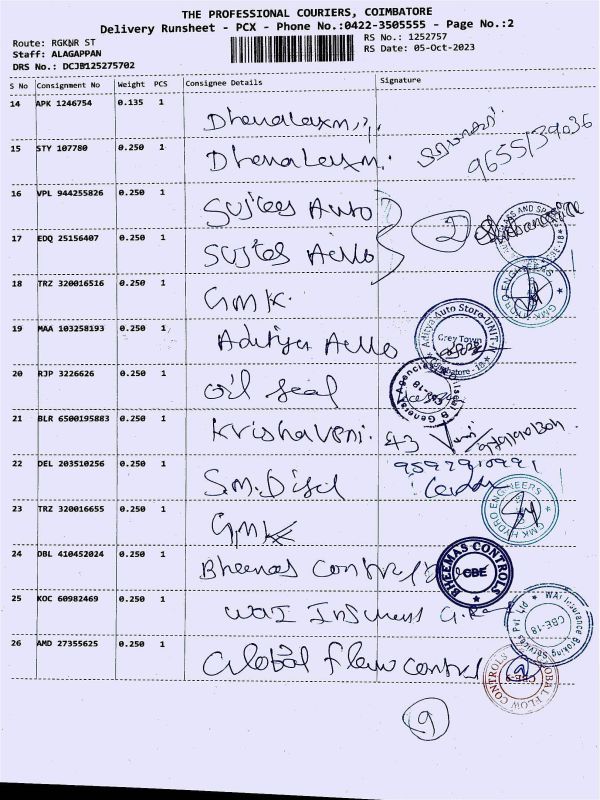 THE PROFESSIONAL COURIERS, COIMBATORE
Delivery Runsheet - PCX - Phone No.:0422-3505555 - Page No.:2
Route: RGKNR ST
RS No.: 1252757
Staff: ALAGAPPAN
RS Date: 05-Oct-2023
DRS No.: DCJB125275702
S No Consignment No Weight PCS Consignee Details Signature
14 APK 1246754 0.135 1 Dhanalaxmi
15 STY 107780 0.250 1 Dhanalaxmi 9655139036
16 VPL 944255826 0.250 1 Sujies Auto 2
17 EDQ 25156407 0.250 1 Sujies Auto
18 TRZ 320016516 0.250 1 GMK. GMK HYDRO ENGINEERS
19 MAA 103258193 0.250 1 Aditya Auto Aditya Auto Store-UNIT-I Grey Town Coimbatore-18
20 RJP 3226626 0.250 1 Oil Seal
21 BLR 6500195883 0.250 1 Krishaveni.
22 DEL 203510256 0.250 1 S.M. Disel
23 TRZ 320016655 0.250 1 GMK GMK HYDRO ENGINEERS
24 DBL 410452024 0.250 1 Bheemas Control BHEEMAS CONTROLS CBE
25 KOC 60982469 0.250 1 WAI WAI Insurance Broking Services Pvt Ltd CBE-18
26 AMD 27355625 0.250 1 Global Flow Control GLOBAL FLOW CONTROLS
9